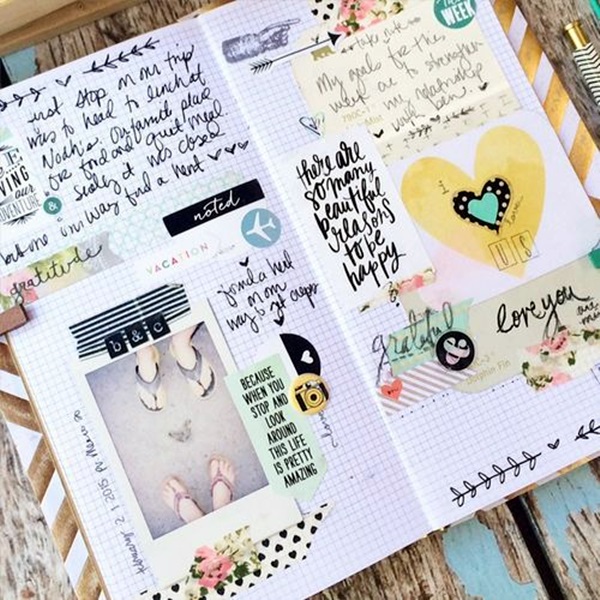 just stop on our trip
was to head to lunch at
Noah's. Our family place
for food and quiet meal.
Sadly it was closed
on way find a
THE
VING
our
ADVENTURE
&
noted
gratitude
VACATION
way to get crepes
b & c
BECAUSE
WHEN YOU
STOP AND
LOOK
AROUND
THIS LIFE
IS PRETTY
AMAZING
love
2 2015
WEEK
take note
My goals for this
week are to strengthen
my relationship
with
there are
so many
beautiful
reasons
to be
happy
I
love
US
grateful
&
love you
are